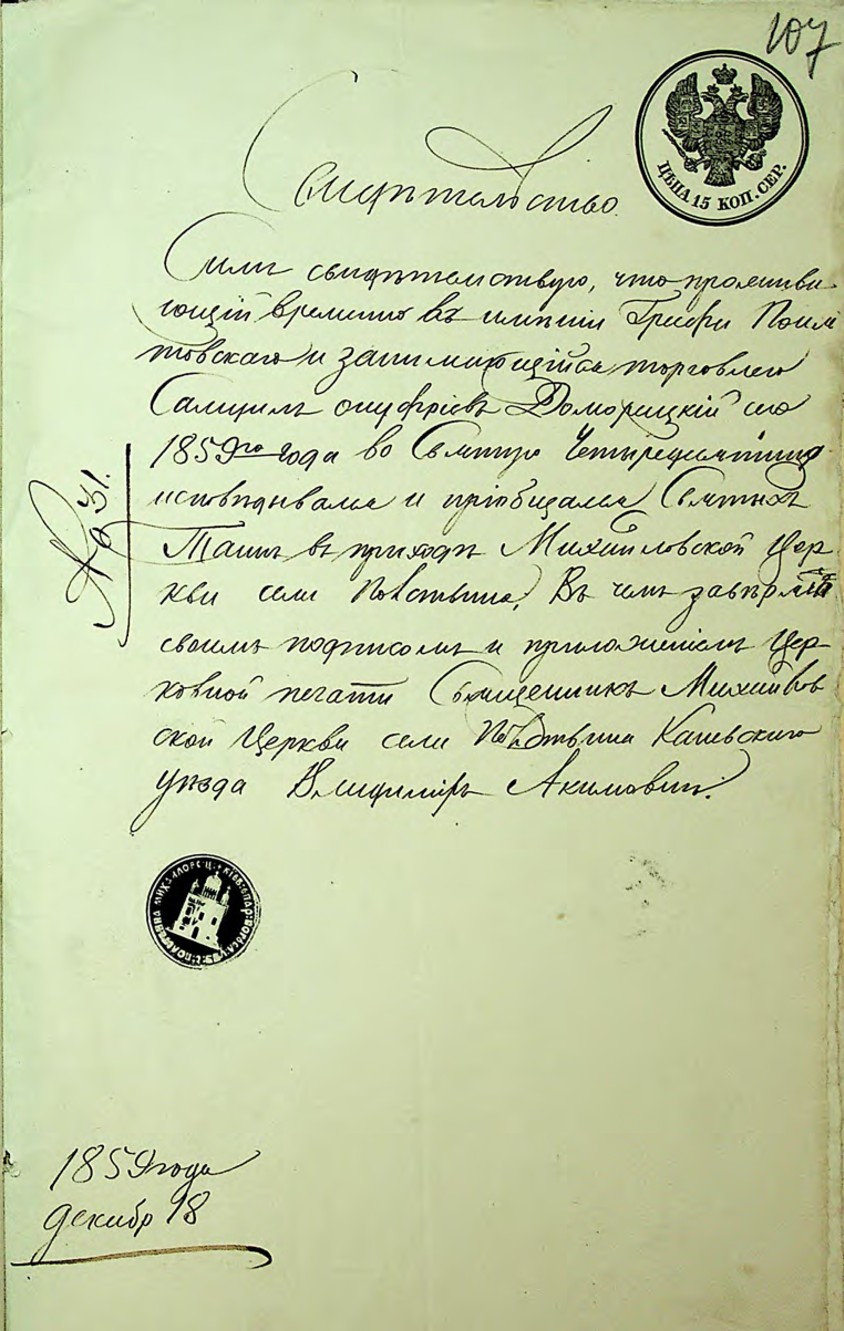 107
ЦѢНА 15 КОП. СЕР.
Свидѣтельство.
Симъ свидѣтельствую, что проживаю-
ющій временно въ имѣніи Графа Поня
товскаго и занимающійся торговлею
Самуилъ Онуфріевъ Доморацкій сего
1859го года во Святую Четыредесятницу
исповѣдывался и пріобщался Святыхъ
Таинъ въ приходѣ Михайловской Цер
кви села Полствина, Въ чемъ завѣряю
своимъ подписомъ и приложеніемъ Цер-
ковной печати Священникъ Михайлов
ской Церкви села Каневского
уѣзда Владиміръ Акимович.
№ 31.
1859 года
декабр 18